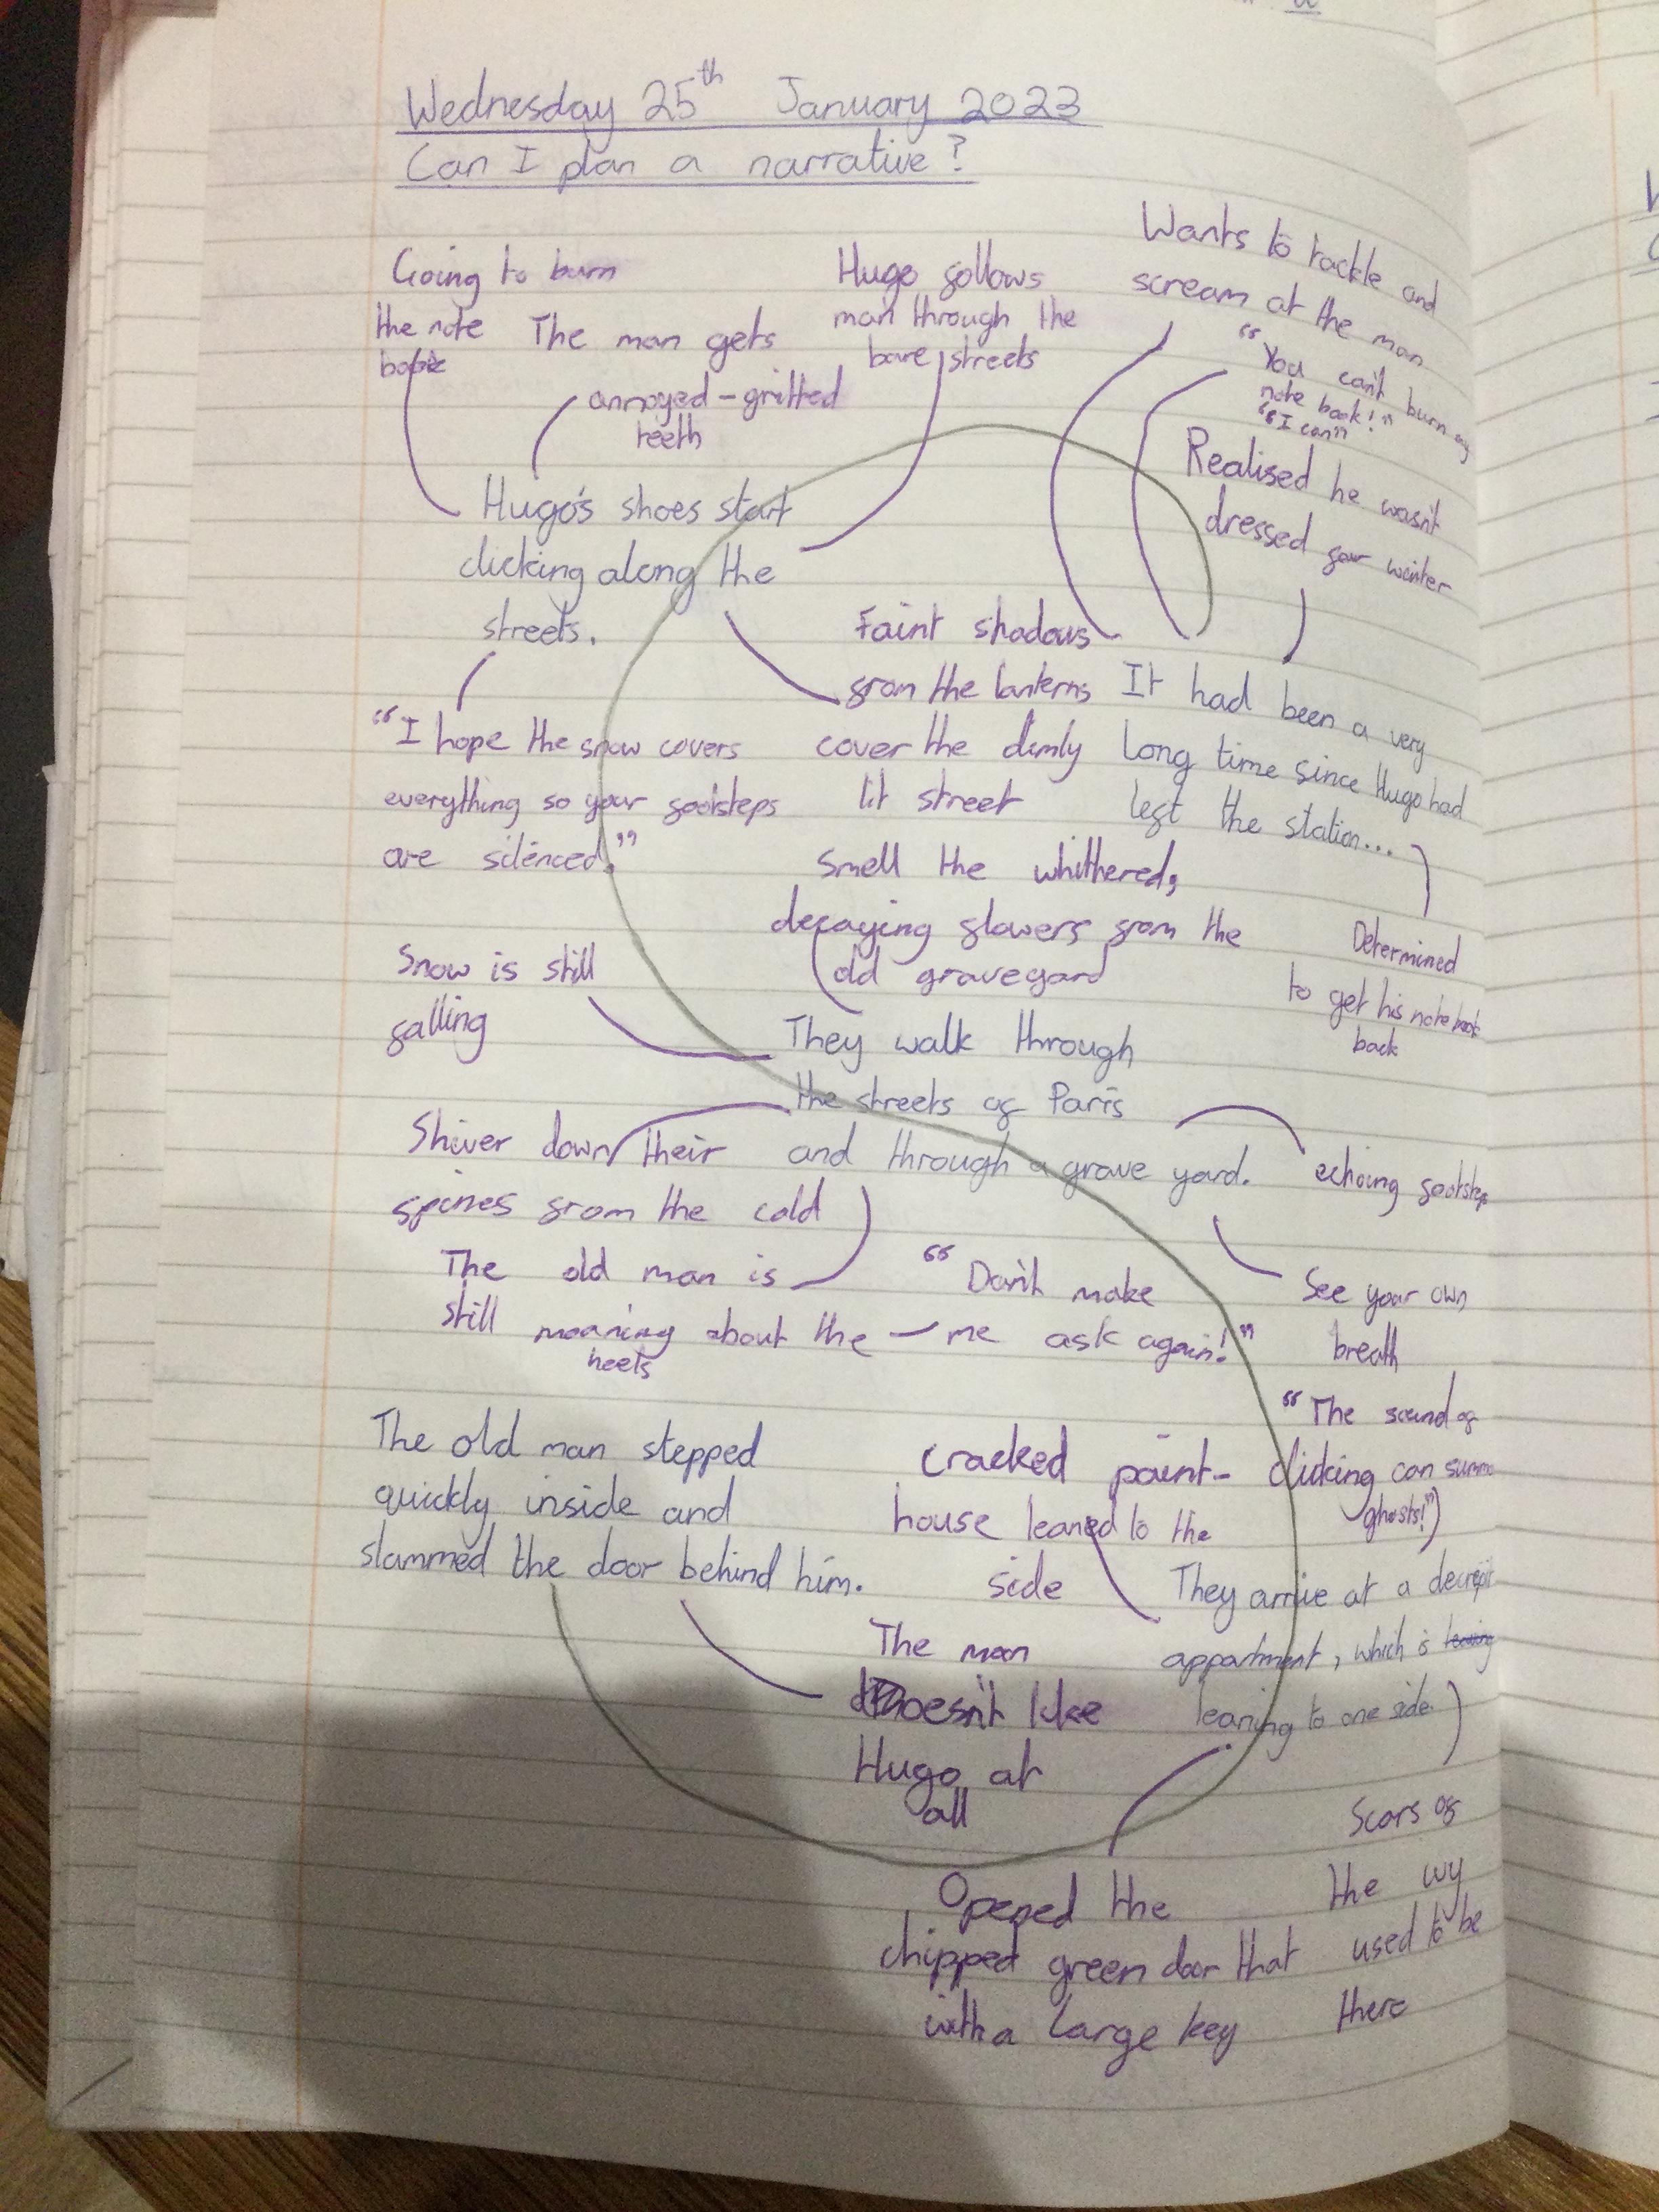 Wednesday 25th January 2023
Can I plan a narrative?
Going to burn
the note
book
The man gets
annoyed - gritted
teeth
Hugo follows
man through the
bare streets
Wants to tackle and
scream at the man
"You can't burn my
note book!"
"I can"
Realised he wasn't
dressed for winter
Hugo's shoes start
clicking along the
streets.
"I hope the snow covers
everything so your footsteps
are silenced."
Faint shadows
from the lanterns
cover the dimly
lit street
It had been a very
long time since Hugo had
left the station...
Determined
to get his note book
back
Smell the whithered,
decaying flowers from the
old graveyard
Snow is still
falling
They walk through
the streets of Paris
and through a grave yard.
echoing footsteps
See your own
breath
Shiver down their
spines from the cold
The old man is
still moaning about the
heels
"Don't make
me ask again!"
"The sound of
clicking can
ghosts!"
The old man stepped
quickly inside and
slammed the door behind him.
Cracked paint-
house leaned to the
side
They arrive at a decrepit
appartment, which is leaning
leaning to one side.
The man
doesn't like
Hugo at
all
Opened the
chipped green door that
with a large key
Scars of
the
used to be
there